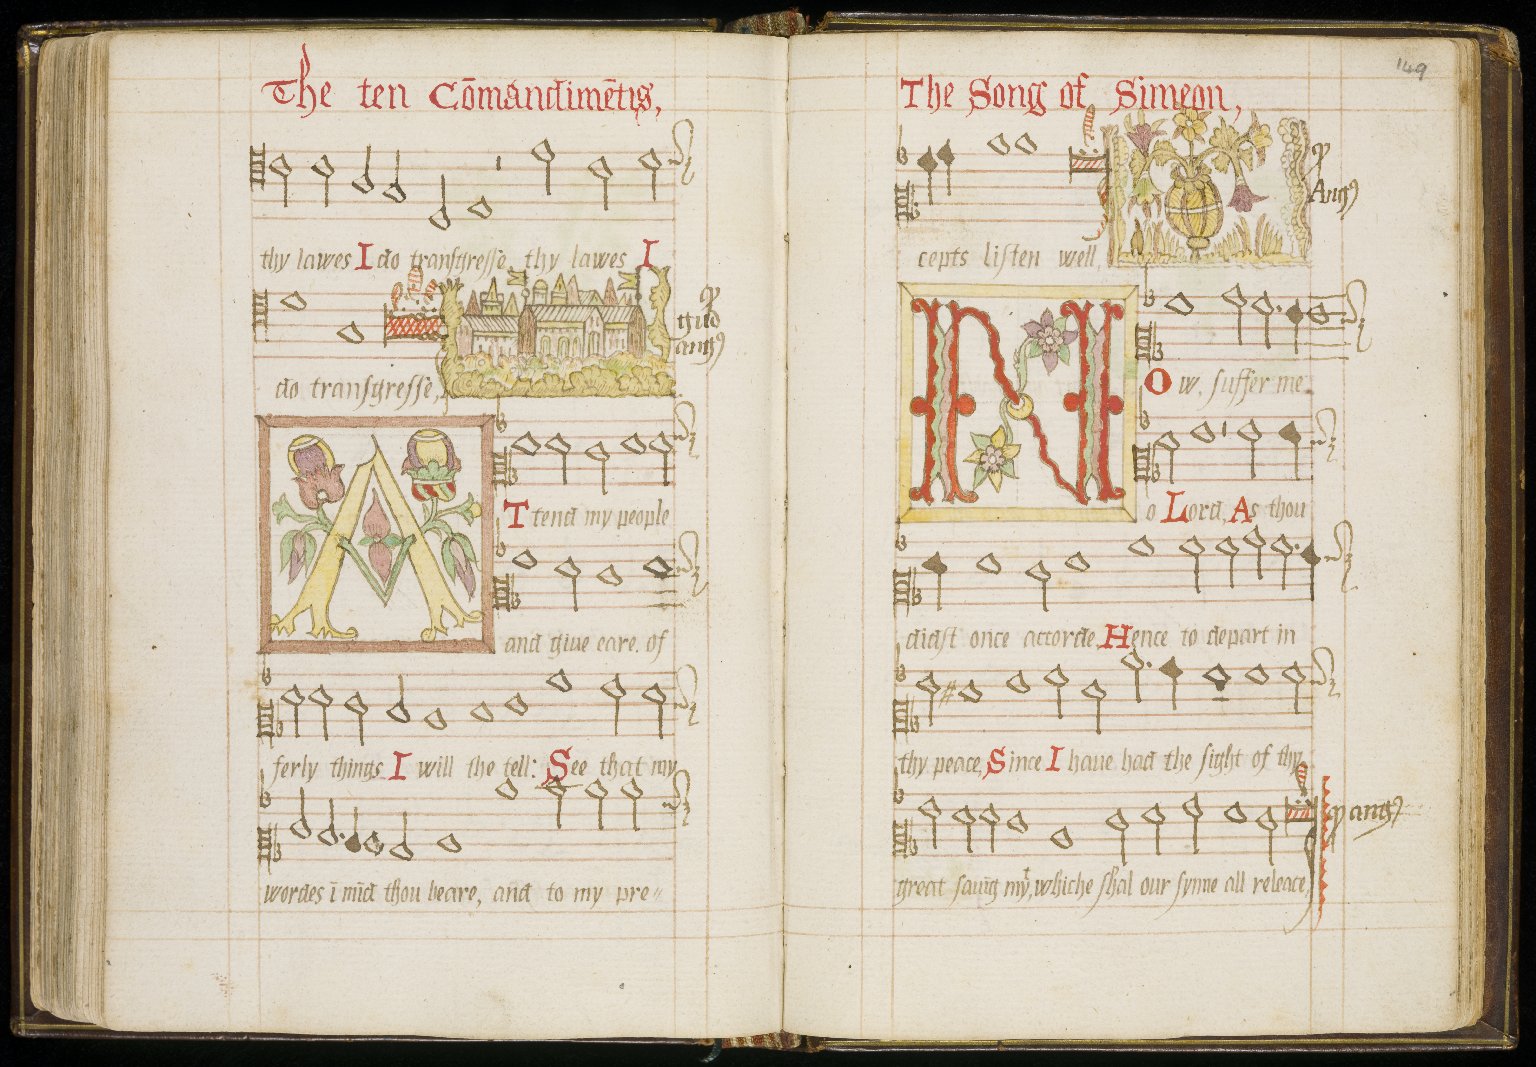 The ten Cōmandimētis,
thy lawes I do transgresse, thy lawes I
do transgresse,
quod
angus
A
Ttend my people
and giue eare, of
ferly things I will the tell: See that my
wordes ī mīd thou beare, and to my pre=
149
The Song of Simeon,
cepts listen well,
Angus
N
Ow, suffer me
o Lord, As thou
didst once accorde, Hence to depart in
thy peace, Since I haue had the sight of thy
great sauīg myt, whiche shal our synne all releace,
angus